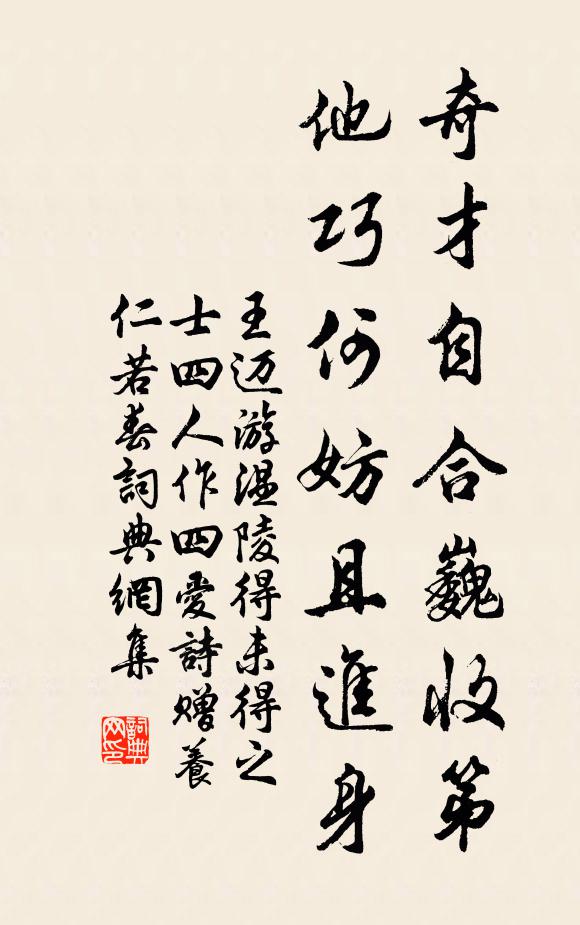 奇才自合巍收第
他巧何妨且進身
王迈游温陵得未得之
士四人作四爱詩赠養
仁若春詞典網集
詞典网印